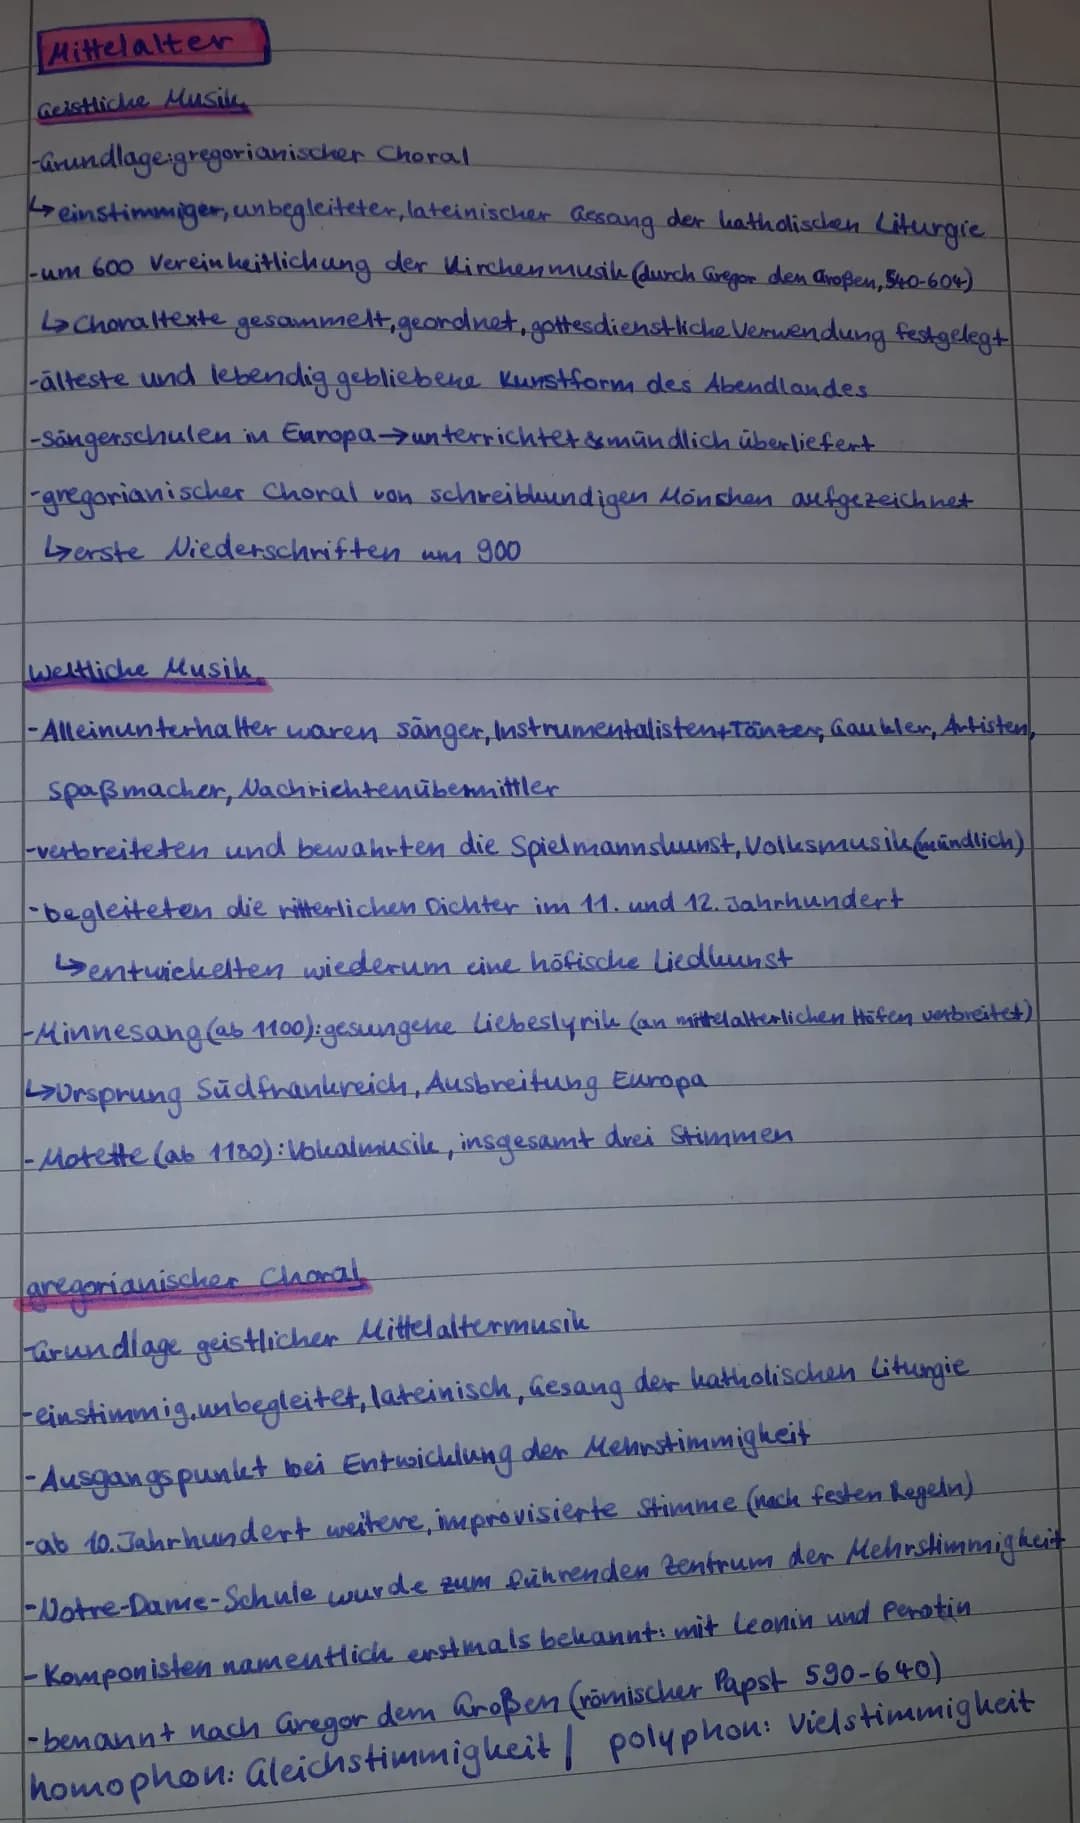 Mittelalter
Geistliche Musik
-Grundlage:gregorianischer Choral
↳einstimmiger, unbegleiteter, lateinischer Gesang der katholischen Liturgie
-um 600 Vereinheitlichung der Kirchenmusik (durch Gregor den Großen, 540-604)
↳Choraltexte gesammelt, geordnet, gottesdienstliche Verwendung festgelegt
-älteste und lebendig gebliebene Kunstform des Abendlandes
-Sängerschulen in Europa→unterrichtet & mündlich überliefert
-gregorianischer Choral von schreibkundigen Mönchen aufgezeichnet
↳erste Niederschriften um 900
Weltliche Musik
-Alleinunterhalter waren Sänger, Instrumentalisten+Tänzer, Gaukler, Artisten,
Spaßmacher, Nachrichtenübermittler
-verbreiteten und bewahrten die Spielmannskunst, Volksmusik (mündlich)
-begleiteten die ritterlichen Dichter im 11. und 12. Jahrhundert
↳entwickelten wiederum eine höfische Liedkunst
-Minnesang (ab 1100): gesungene Liebeslyrik (an mittelalterlichen Höfen verbreitet)
↳Ursprung Südfrankreich, Ausbreitung Europa
-Motette (ab 1180): Vokalmusik, insgesamt drei Stimmen
gregorianischer Choral
-Grundlage geistlicher Mittelaltermusik
-einstimmig, unbegleitet, lateinisch, Gesang der katholischen Liturgie
-Ausgangspunkt bei Entwicklung der Mehrstimmigkeit
-ab 10. Jahrhundert weitere, improvisierte Stimme (nach festen Regeln)
-Notre-Dame-Schule wurde zum führenden Zentrum der Mehrstimmigkeit
-Komponisten namentlich erstmals bekannt: mit Leonin und Perotin
-benannt nach Gregor dem Großen (römischer Papst 590-640)
homophon: Gleichstimmigkeit / polyphon: Vielstimmigkeit